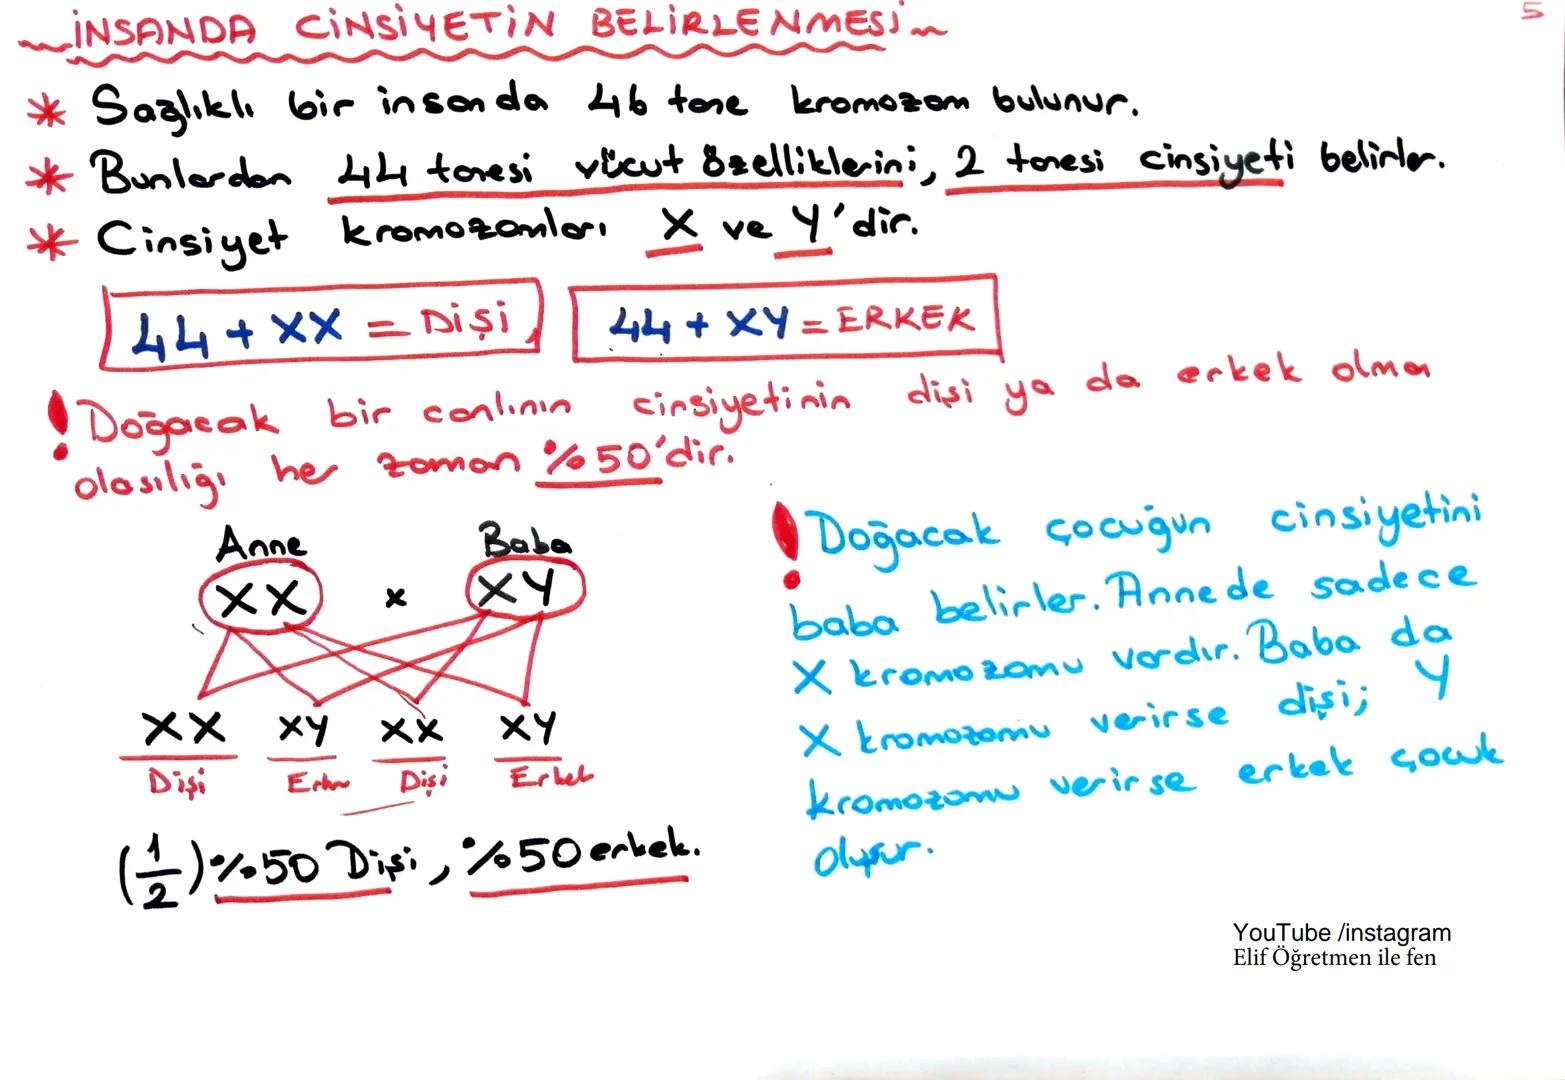 5
İNSANDA CİNSİYETİN BELİRLENMESİ
* Sağlıklı bir insanda 46 tane kromozom bulunur.
* Bunlardan 44 tanesi vücut özelliklerini, 2 tanesi cinsiyeti belirler.
* Cinsiyet kromozomları X ve Y'dir.
44 + XX = DİŞİ
44 + XY = ERKEK
! Doğacak bir canlının cinsiyetinin dişi ya da erkek olma
olasılığı her zaman %50'dir.
Anne Baba
XX x XY
XX XY XX XY
Dişi Erkek Dişi Erkek
(1/2) %50 Dişi, %50 erkek.
! Doğacak çocuğun cinsiyetini
baba belirler. Annede sadece
X kromozomu vardır. Baba da
X kromozomu verirse dişi; Y
kromozomu verirse erkek çocuk
oluşur.
YouTube /instagram
Elif Öğretmen ile fen